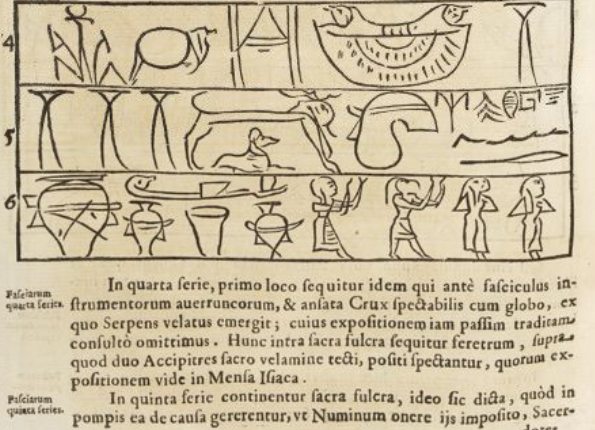 4
5
6
In quarta serie, primo loco sequitur idem qui antè fasciculus in-
Fasciarum
quarta series.
strumentorum auerruncorum, & ansata Crux spectabilis cum globo, ex
quo Serpens velatus emergit; cuius expositionem iam passim traditam
consultò omittimus. Hunc intra sacra fulcra sequitur feretrum, supra
quod duo Accipitres sacro velamine tecti, positi spectantur, quorum ex-
positionem vide in Mensa Isiaca.
Fasciarum
quinta series.
In quinta serie continentur sacra fulcra, ideo sic dicta, quòd in
pompis ea de causa gererentur, vt Numinum onere ijs imposito, Sacer-